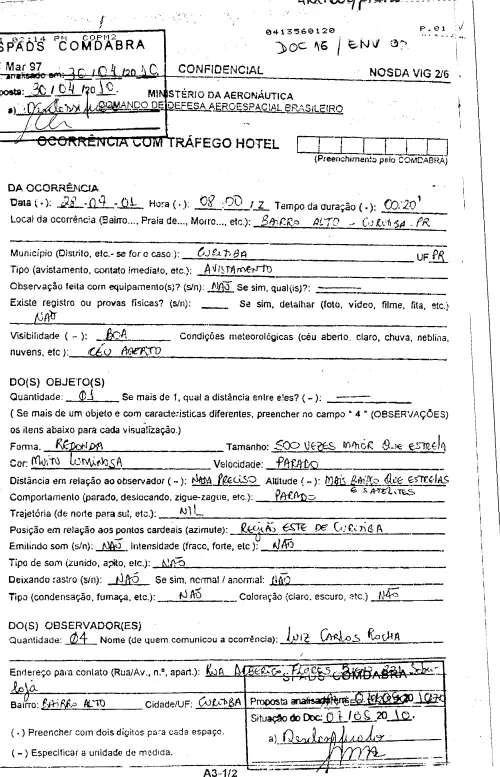 02:14 PM COPM2
0413560120
P.01
DOC 16 / ENV 02
SPADS COMDABRA
Mar 97
analisado em: 30/04/2010
CONFIDENCIAL
NOSDA VIG 2/6
posta: 30/04/2010
MINISTÉRIO DA AERONÁUTICA
a)
COMANDO DE DEFESA AEROESPACIAL BRASILEIRO
OCORRÊNCIA COM TRÁFEGO HOTEL
(Preenchimento pelo COMDABRA)
DA OCORRÊNCIA
Data (-): 28-04-01 Hora (-): 08:00/Z Tempo da duração (-): 00:20'
Local da ocorrência (Bairro..., Praia de..., Morro..., etc.): BAIRRO ALTO - CURITIBA-PR
Município (Distrito, etc.- se for o caso): CURITIBA UF PR
Tipo (avistamento, contato imediato, etc.): AVISTAMENTO
Observação feita com equipamento(s)? (s/n): NÃO Se sim, qual(is)?:
Existe registro ou provas físicas? (s/n): Se sim, detalhar (foto, vídeo, filme, fita, etc.)
NÃO
Visibilidade ( – ): BOA Condições meteorológicas (céu aberto, claro, chuva, neblina,
nuvens, etc): CÉU ABERTO
DO(S) OBJETO(S)
Quantidade: 01 Se mais de 1, qual a distância entre eles? ( – ):
( Se mais de um objeto e com características diferentes, preencher no campo " 4 " (OBSERVAÇÕES)
os itens abaixo para cada visualização.)
Forma: REDONDA Tamanho: 500 VEZES MAIOR QUE ESTRELA
Cor: MUITO LUMINOSA Velocidade: PARADO
Distância em relação ao observador ( – ): NADA PRECISO Altitude ( – ): MAIS BAIXO QUE ESTRELAS
E SATELITES
Comportamento (parado, deslocando, zigue-zague, etc.): PARADO
Trajetória (de norte para sul, etc.): NIL
Posição em relação aos pontos cardeais (azimute): REGIÃO ESTE DE CURITIBA
Emitindo som (s/n): NÃO Intensidade (fraco, forte, etc): NÃO
Tipo de som (zunido, apito, etc.): NÃO
Deixando rastro (s/n): NÃO Se sim, normal / anormal: NÃO
Tipo (condensação, fumaça, etc.): NÃO Coloração (claro, escuro, etc.) NÃO
DO(S) OBSERVADOR(ES)
Quantidade: 04 Nome (de quem comunicou a ocorrência): LUIZ CARLOS ROCHA
Endereço para contato (Rua/Av., n.º, apart.): RUA
loja
SPADS COMDABRA
Bairro: BAIRRO ALTO Cidade/UF: CURITIBA
Proposta analisada em:
Situação do Doc: 07/05/2010.
( - ) Preencher com dois dígitos para cada espaço.
a)
( – ) Especificar a unidade de medida.
A3-1/2